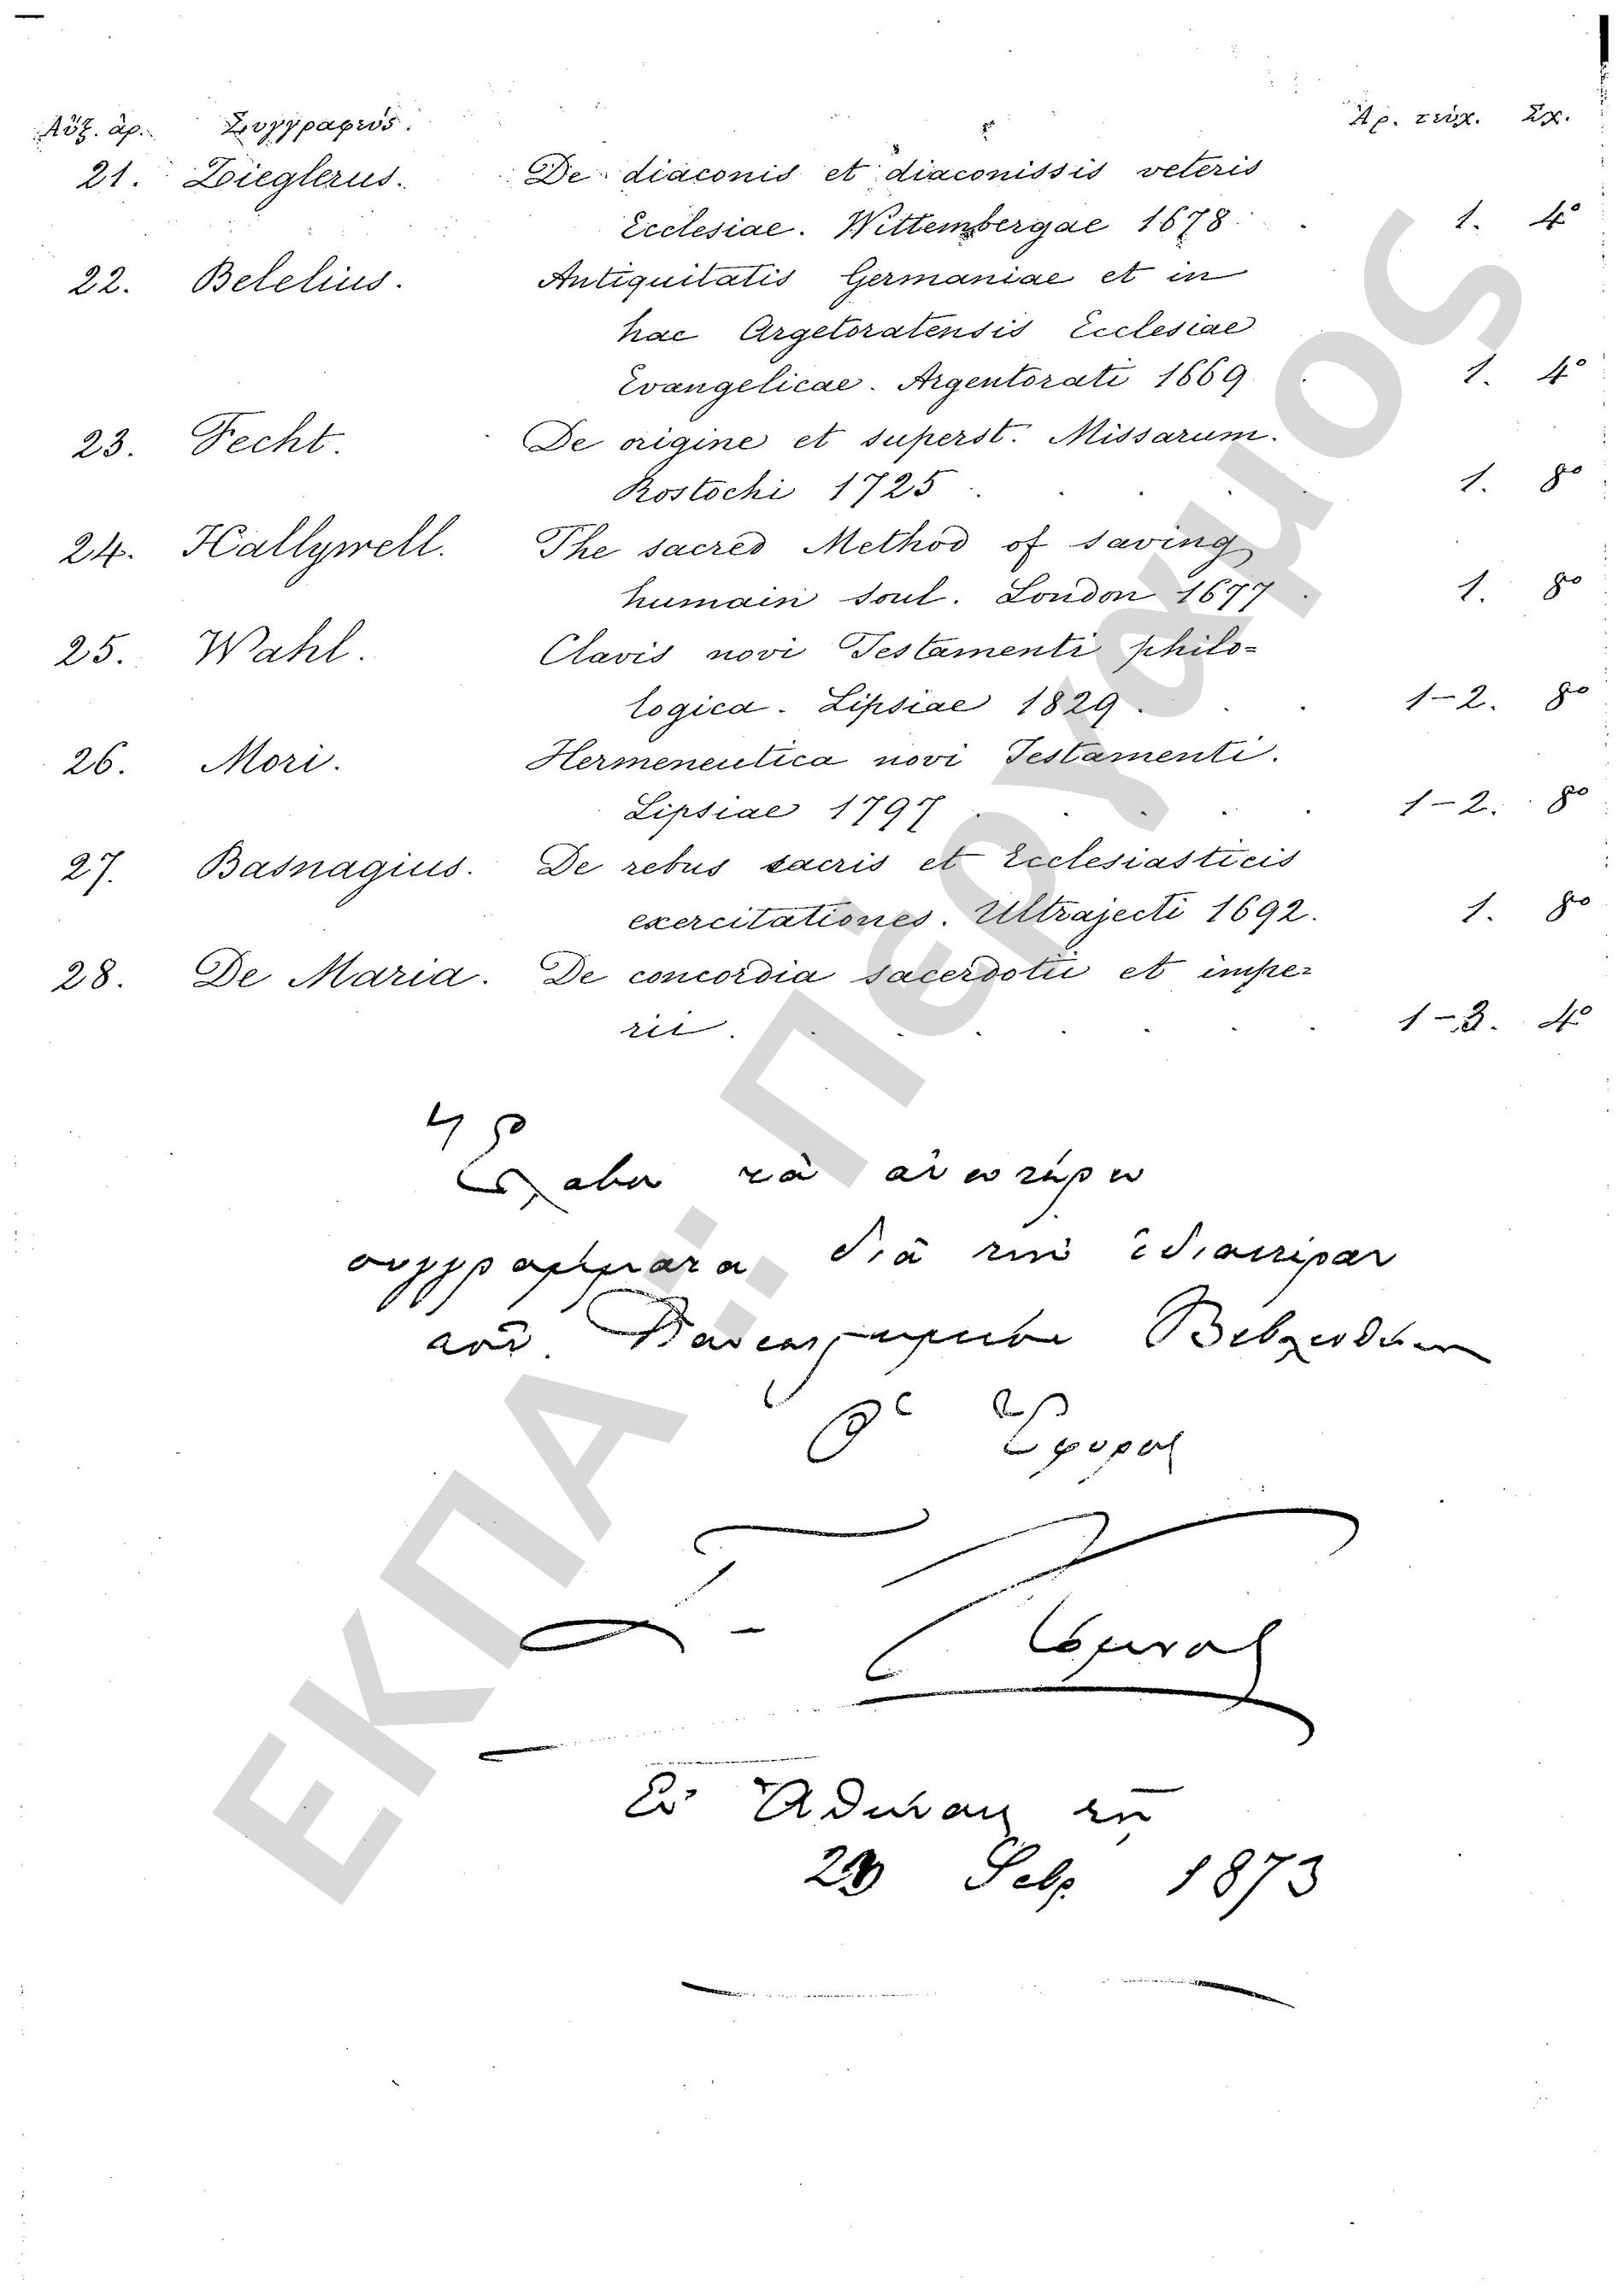 Αὔξ. ἀρ. Συγγραφεύς. Ἀρ. τεύχ. Σχ.
21. Zieglerus. De diaconis et diaconissis veteris
Ecclesiae. Wittembergae 1678. 1. 4°
22. Belelius. Antiquitatis Germaniae et in
hac Argetoratensis Ecclesiae
Evangelicae. Argentorati 1669. 1. 4°
23. Fecht. De origine et superst. Missarum.
Rostochi 1725 1. 8°
24. Hallywell. The sacred Method of saving
humain soul. London 1677. 1. 8°
25. Wahl. Clavis novi Testamenti philo=
logica. Lipsiae 1829. 1-2. 8°
26. Mori. Hermeneutica novi Testamenti.
Lipsiae 1797 1-2. 8°
27. Basnagius. De rebus sacris et Ecclesiasticis
exercitationes. Ultrajecti 1692. 1. 8°
28. De Maria. De concordia sacerdotii et impe=
rii. 1-3. 4°
Ἔλαβα τὰ ἀνωτέρω
συγγράμματα διὰ τὴν
τοῦ Βιβλιοθήκην
Ὁ Ἔφορος
Ἐν Ἀθήναις τῇ
Σεβρ 1873
ΕΚΠΑ:: Πέργαμος